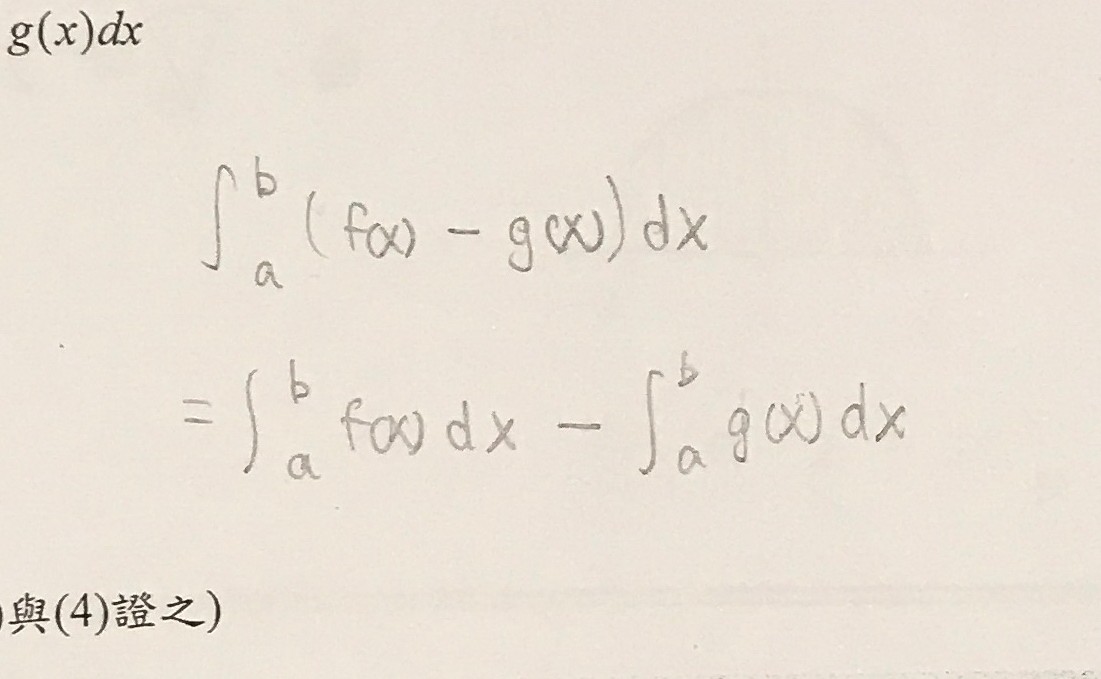 g(x)dx
∫ₐᵇ (f(x) − g(x)) dx
= ∫ₐᵇ f(x) dx − ∫ₐᵇ g(x) dx
)與(4)證之)